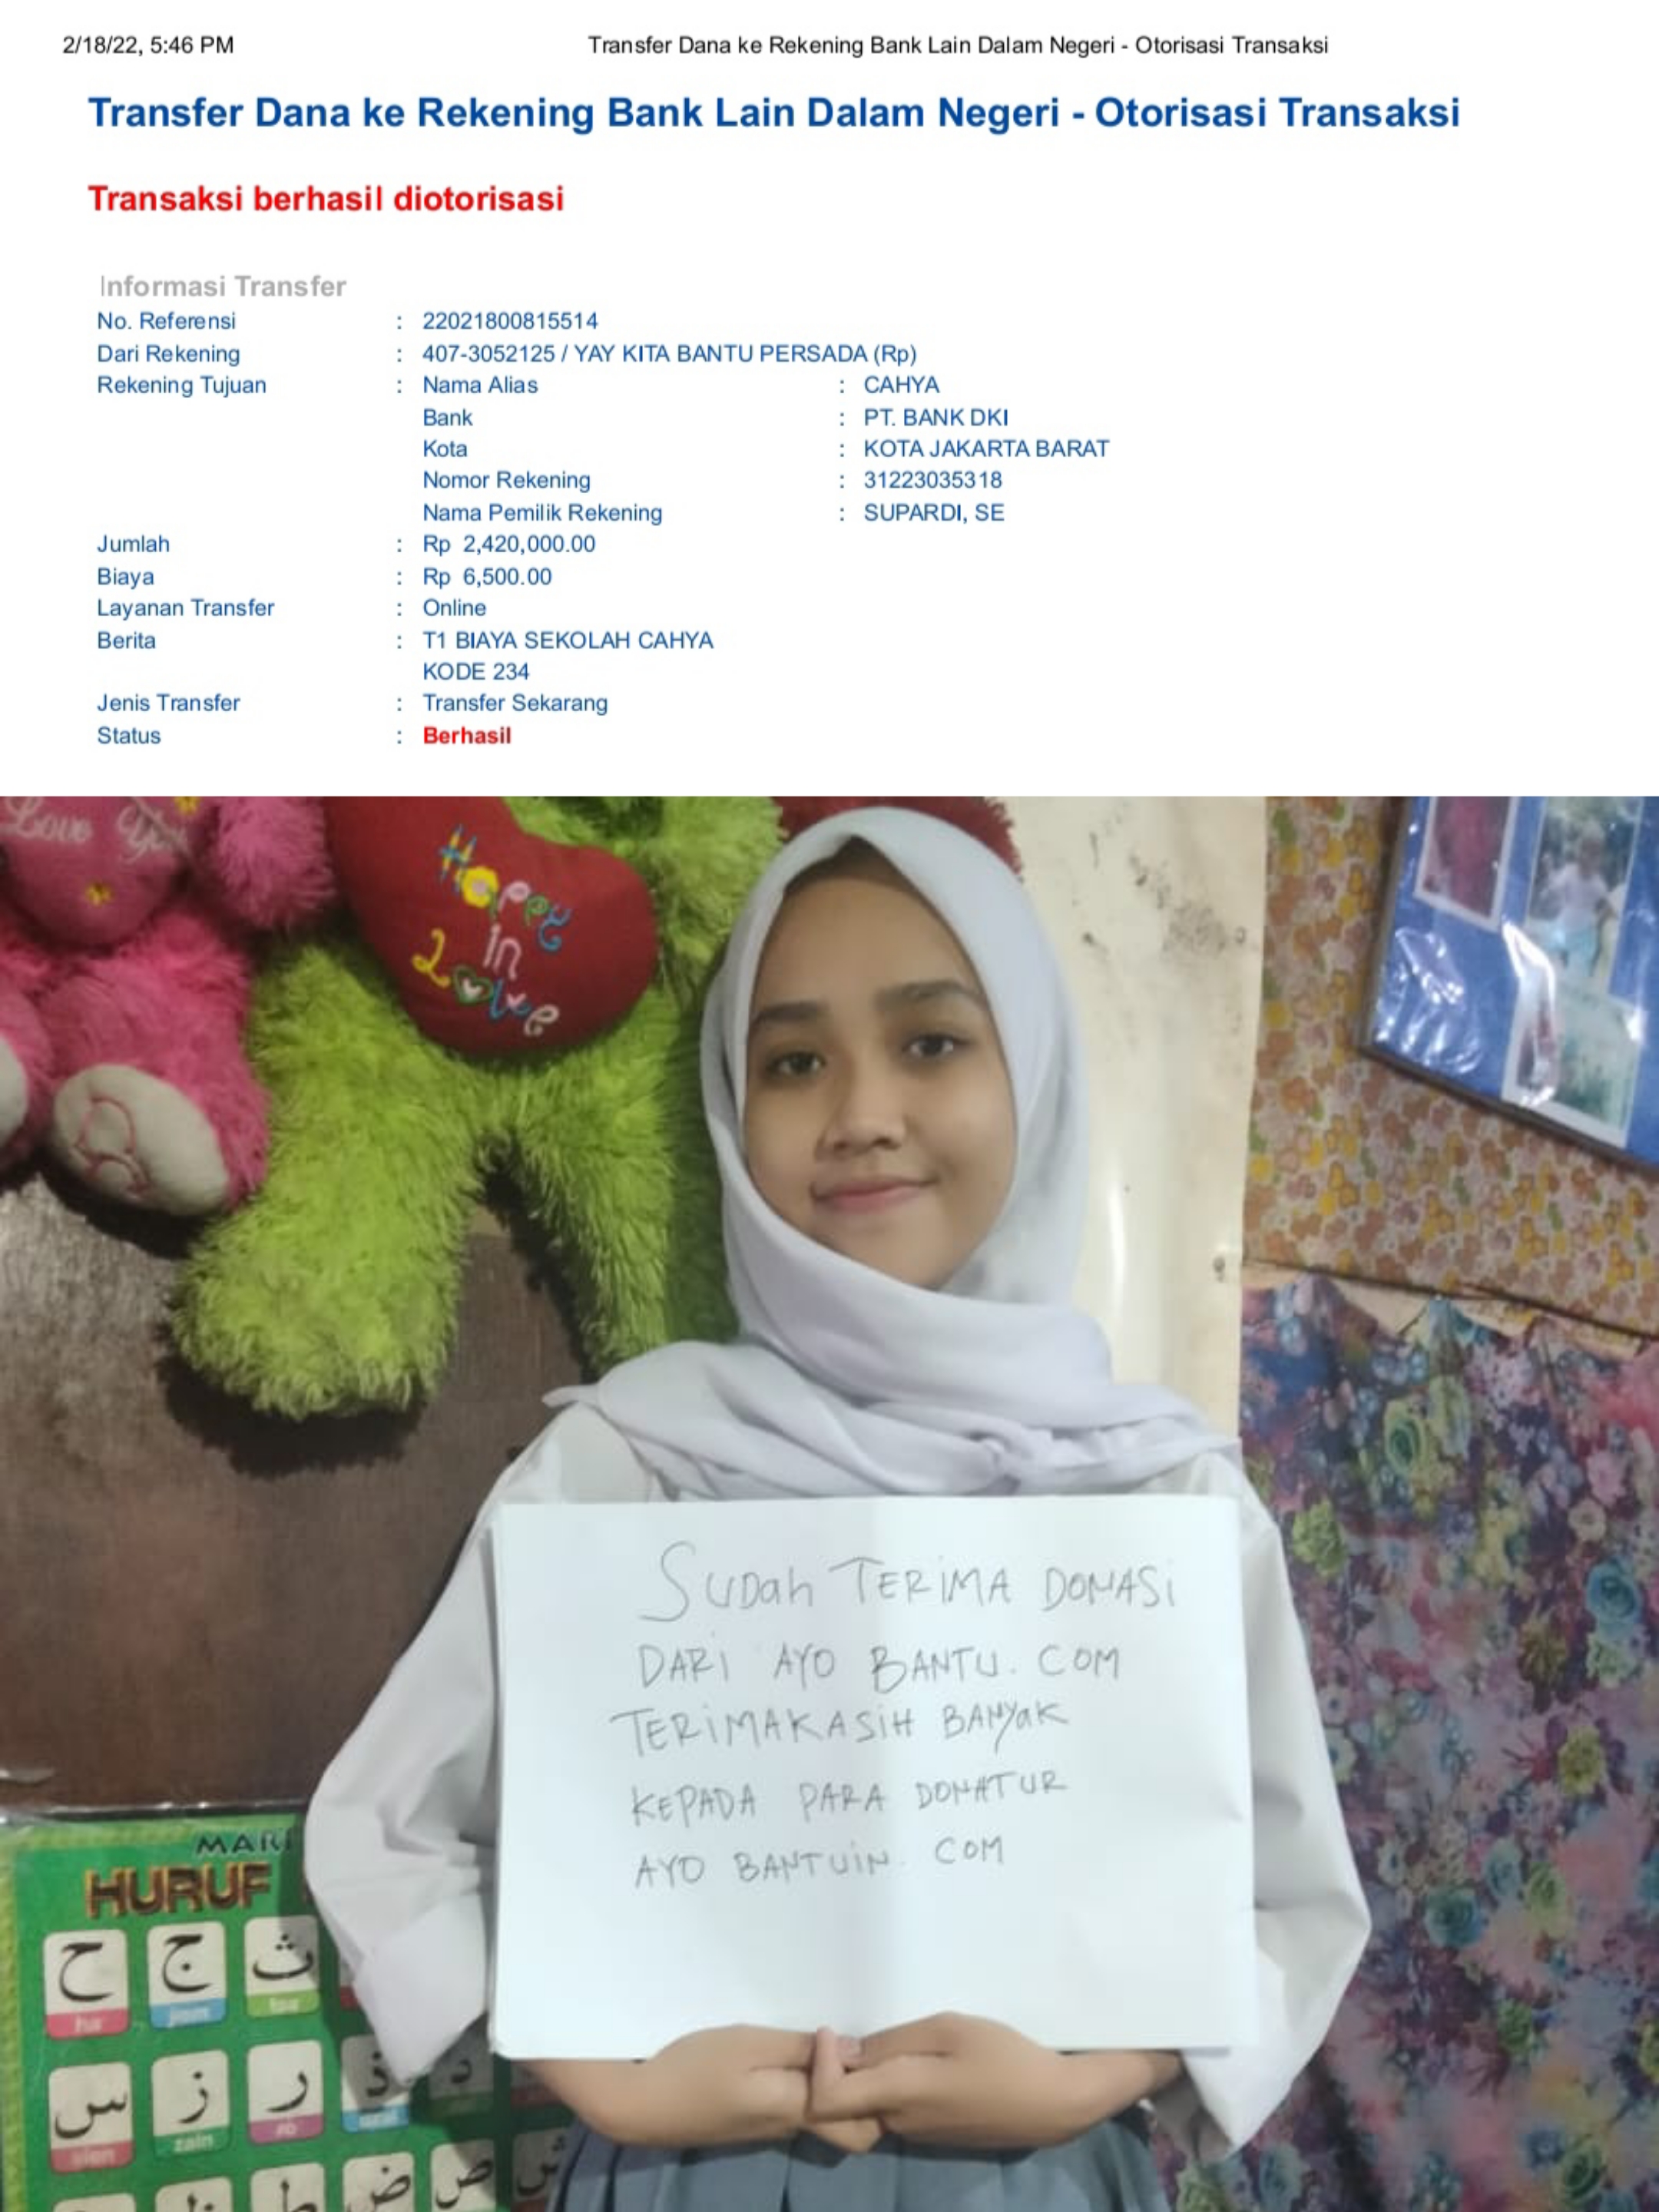 2/18/22, 5:46 PM Transfer Dana ke Rekening Bank Lain Dalam Negeri - Otorisasi Transaksi
Transfer Dana ke Rekening Bank Lain Dalam Negeri - Otorisasi Transaksi
Transaksi berhasil diotorisasi
Informasi Transfer
No. Referensi : 22021800815514
Dari Rekening : 407-3052125 / YAY KITA BANTU PERSADA (Rp)
Rekening Tujuan : Nama Alias : CAHYA
Bank : PT. BANK DKI
Kota : KOTA JAKARTA BARAT
Nomor Rekening : 31223035318
Nama Pemilik Rekening : SUPARDI, SE
Jumlah : Rp 2,420,000.00
Biaya : Rp 6,500.00
Layanan Transfer : Online
Berita : T1 BIAYA SEKOLAH CAHYA
KODE 234
Jenis Transfer : Transfer Sekarang
Status : Berhasil
Love You
Happy
in
Love
SUDah TERIMA DONASi
DARI AYO BANTU. COM
TERiMAKASiH BANyaK
KEPADA PARA DONATUR
AYO BANTUiN. COM
MARI
HURUF
ح ج ث
ha jim tsa
س ز ر ذ د
zain
ض ص ش